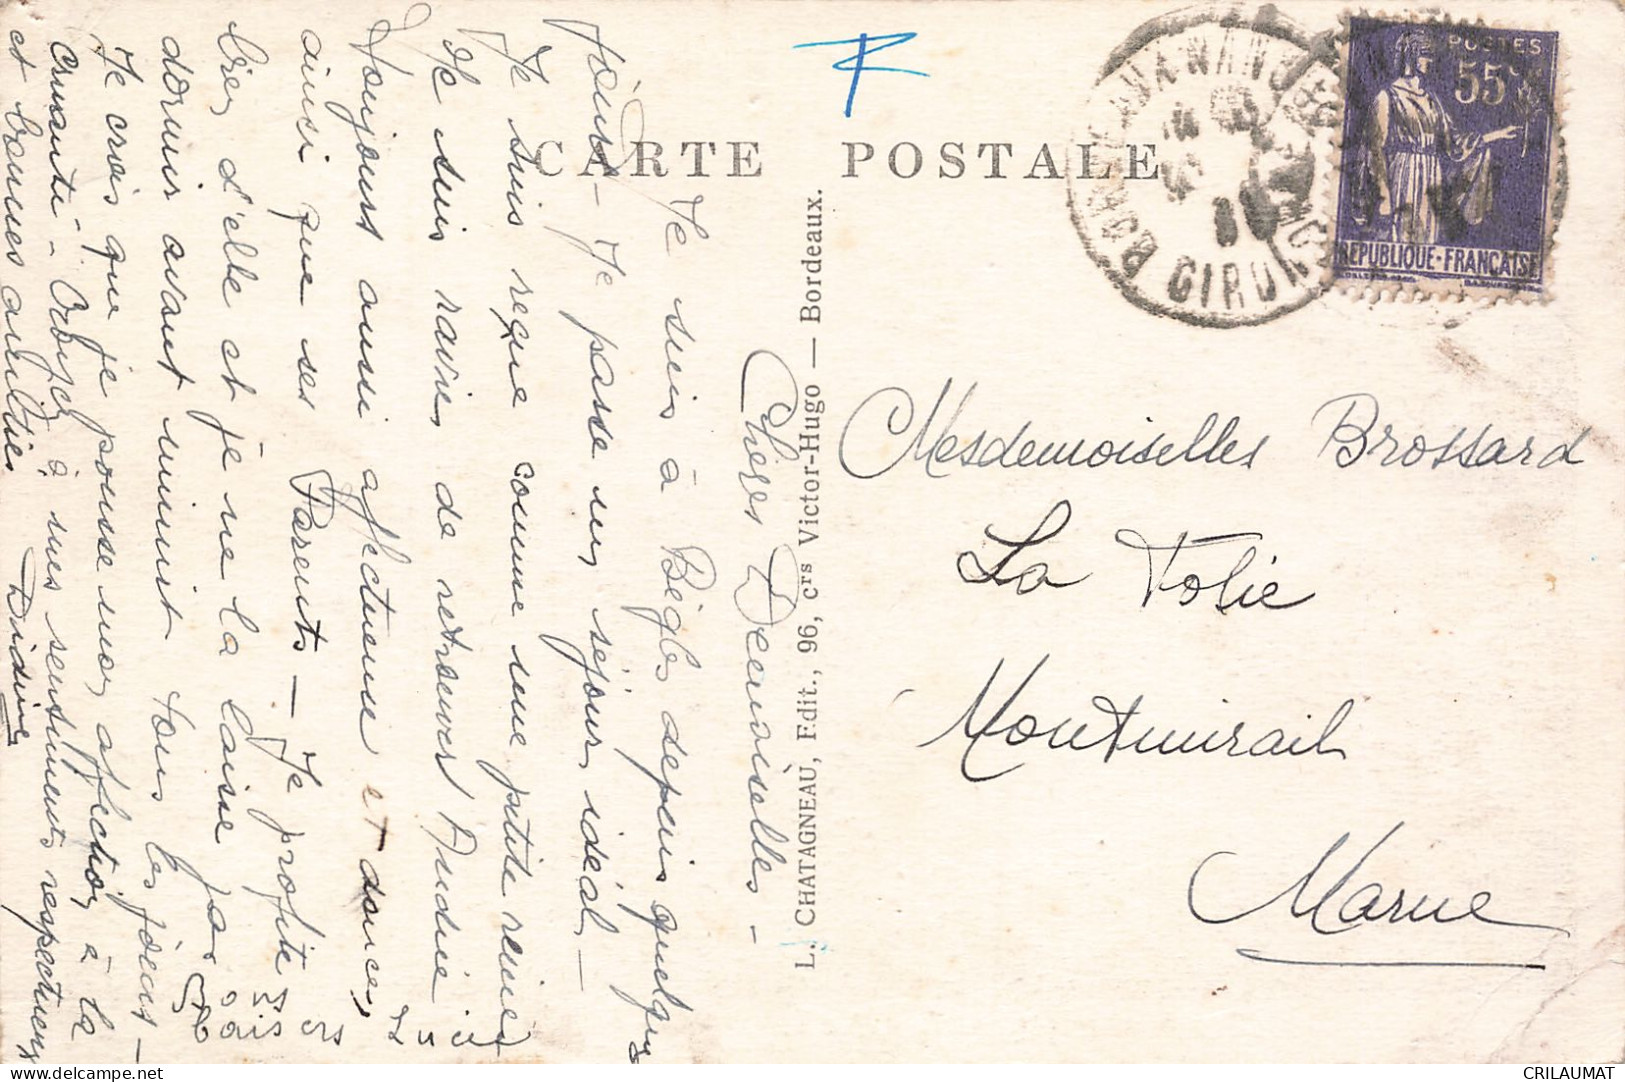 CARTE POSTALE
POSTES
55c
REPUBLIQUE-FRANÇAISE
GIRONDE
L. CHATAGNEAU, Edit., 96, crs Victor-Hugo — Bordeaux.
Chères Demoiselles -
Je suis à Bègles depuis quelques
jours - Je passe un séjour idéal -
Je suis reçue comme une petite reine
Je suis ravie de retrouver Andrée
toujours aussi affectueuse et douce,
ainsi que ses Parents - Je profite
bien d'elle et je ne la laisse pas
dormir avant minuit tous les jours -
Je crois que je pousse mon affection à la
cruauté - à mes sentiments respectueux
et bonnes amitiés
Didine
Mesdemoiselles Brossard
La Folie
Montmirail
Marne
CRILAUMAT